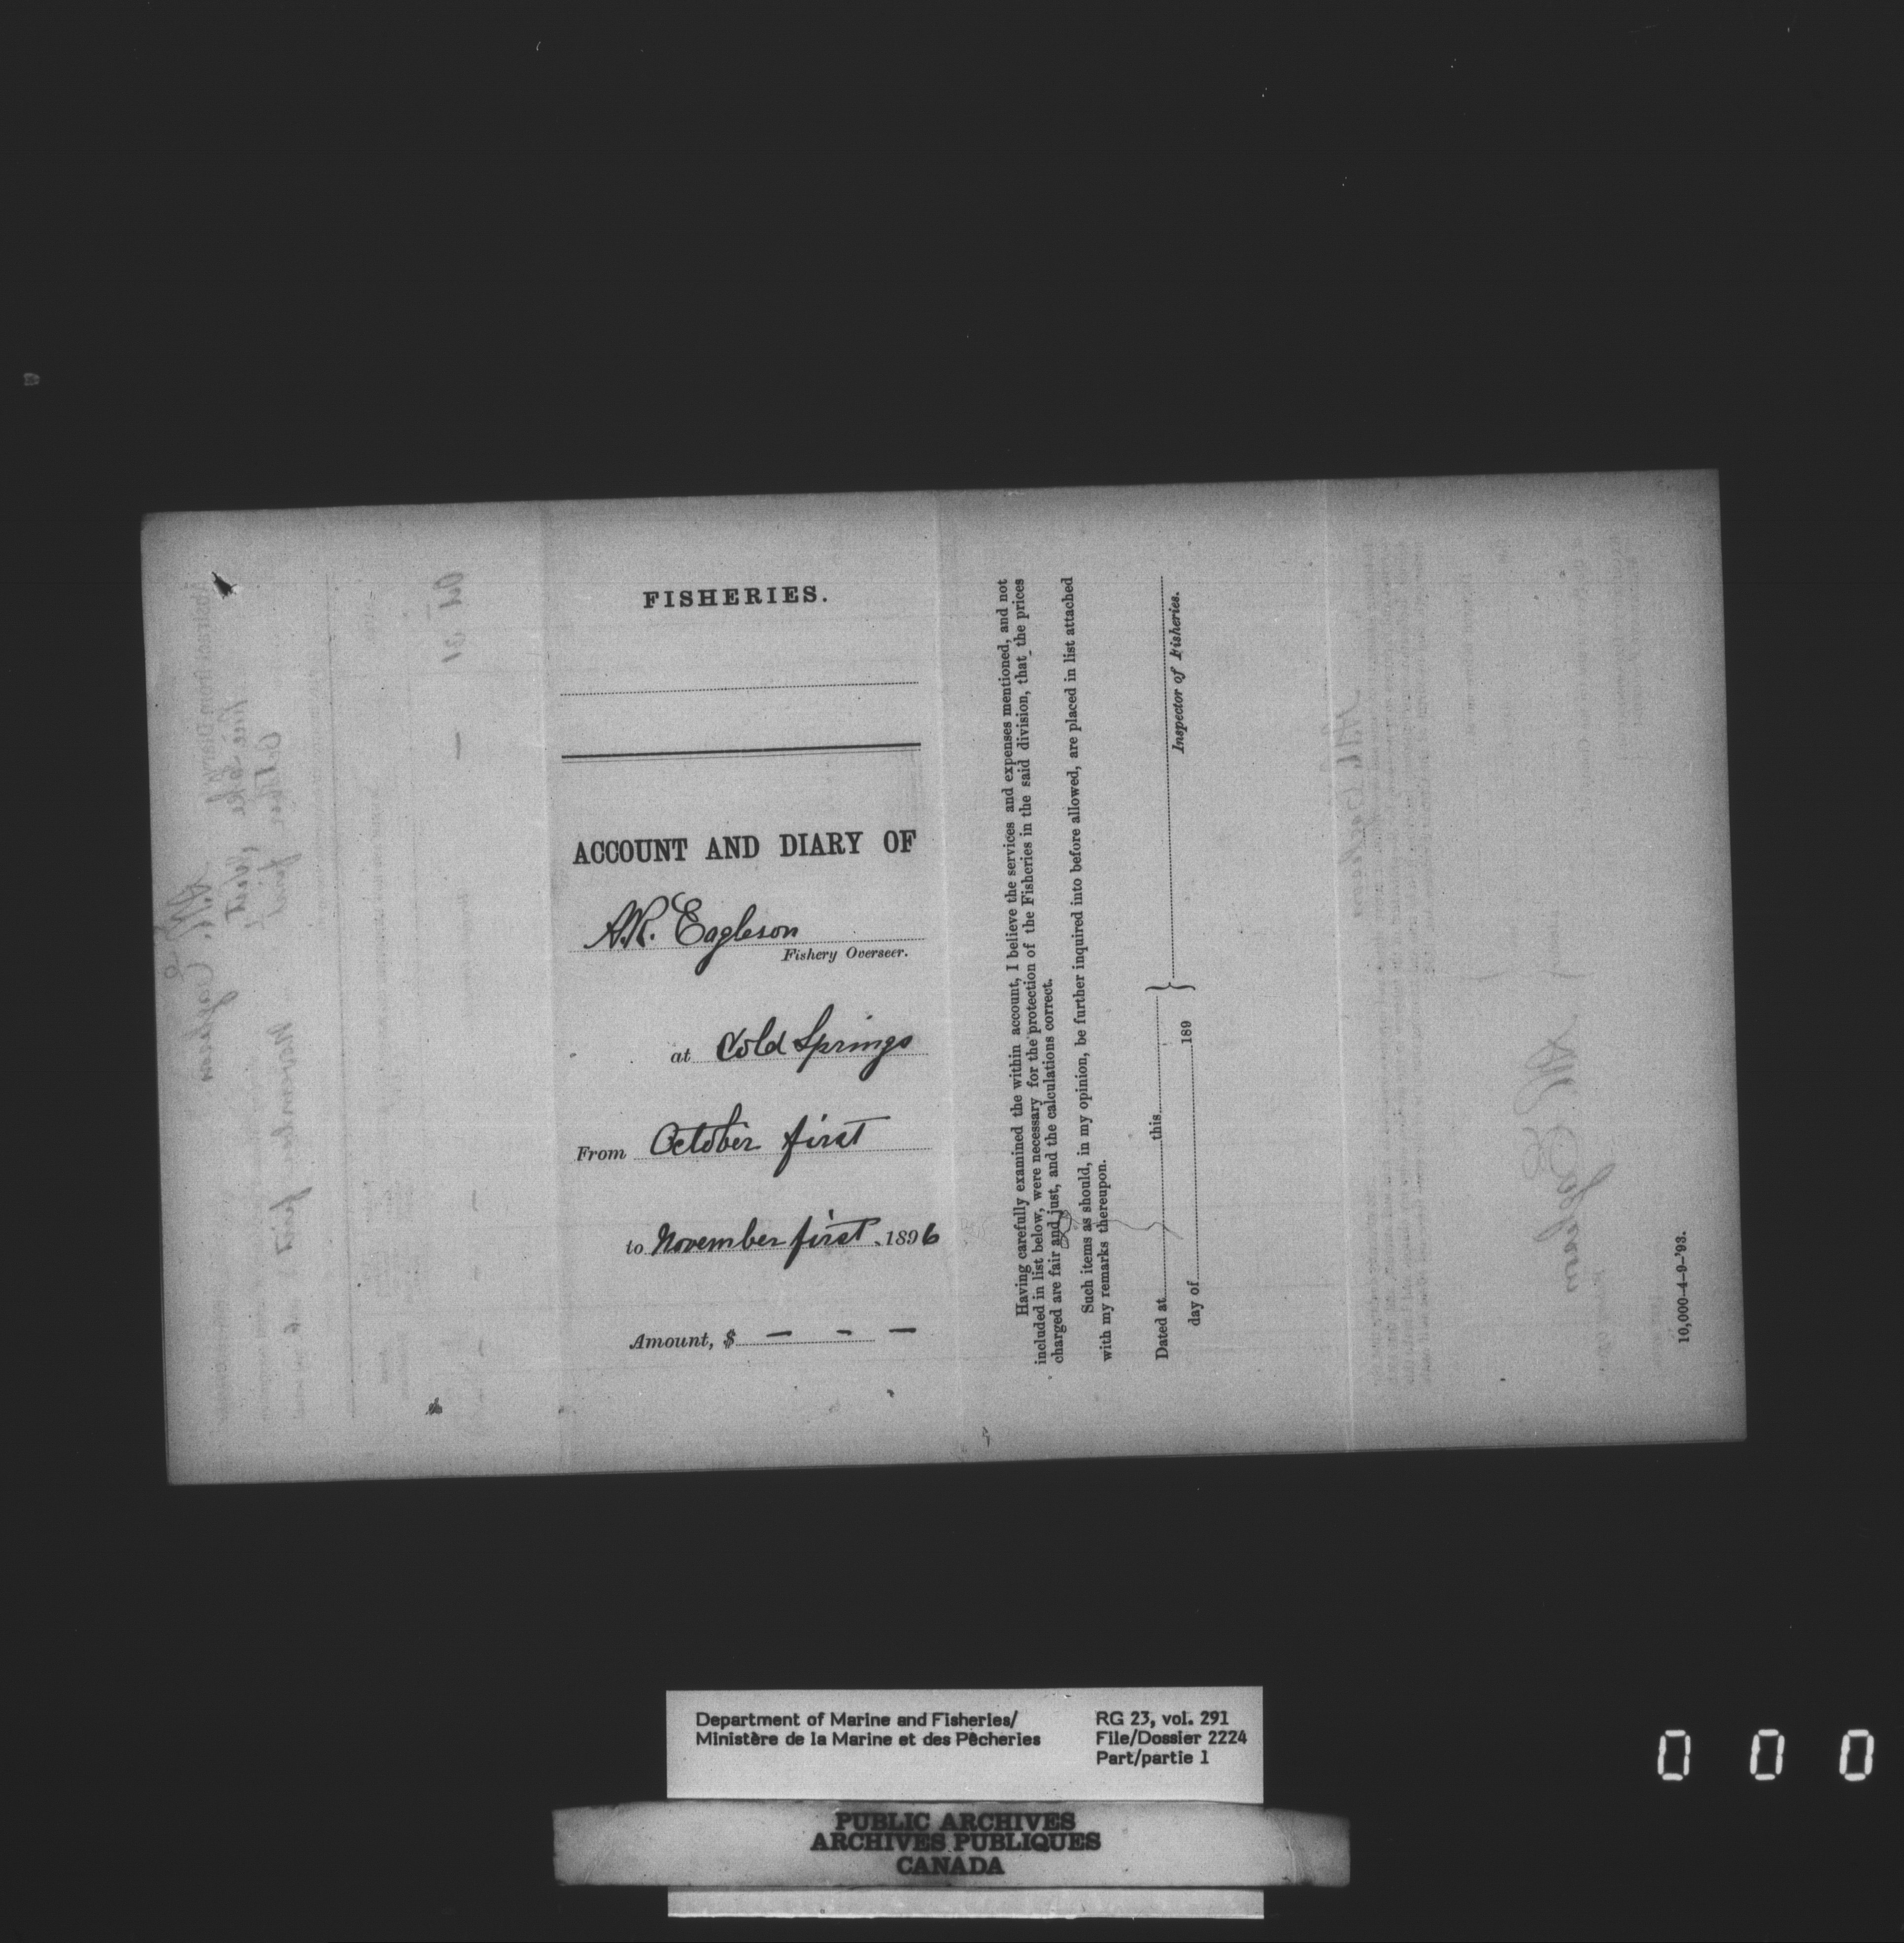 FISHERIES.
ACCOUNT AND DIARY OF
A.R. Eagleson
Fishery Overseer.
at Cold Springs
From October first
to November first, 1896
Amount, $ — - —
Having carefully examined the within account, I believe the services and expenses mentioned, and not
included in list below, were necessary for the protection of the Fisheries in the said division, that the prices
charged are fair and just, and the calculations correct.
Such items as should, in my opinion, be further inquired into before allowed, are placed in list attached
with my remarks thereupon.
Dated at this
day of 189
Inspector of Fisheries.
10,000-4-9-'93.
Department of Marine and Fisheries/
Ministère de la Marine et des Pêcheries
RG 23, vol. 291
File/Dossier 2224
Part/partie 1
PUBLIC ARCHIVES
ARCHIVES PUBLIQUES
CANADA
0 0 0